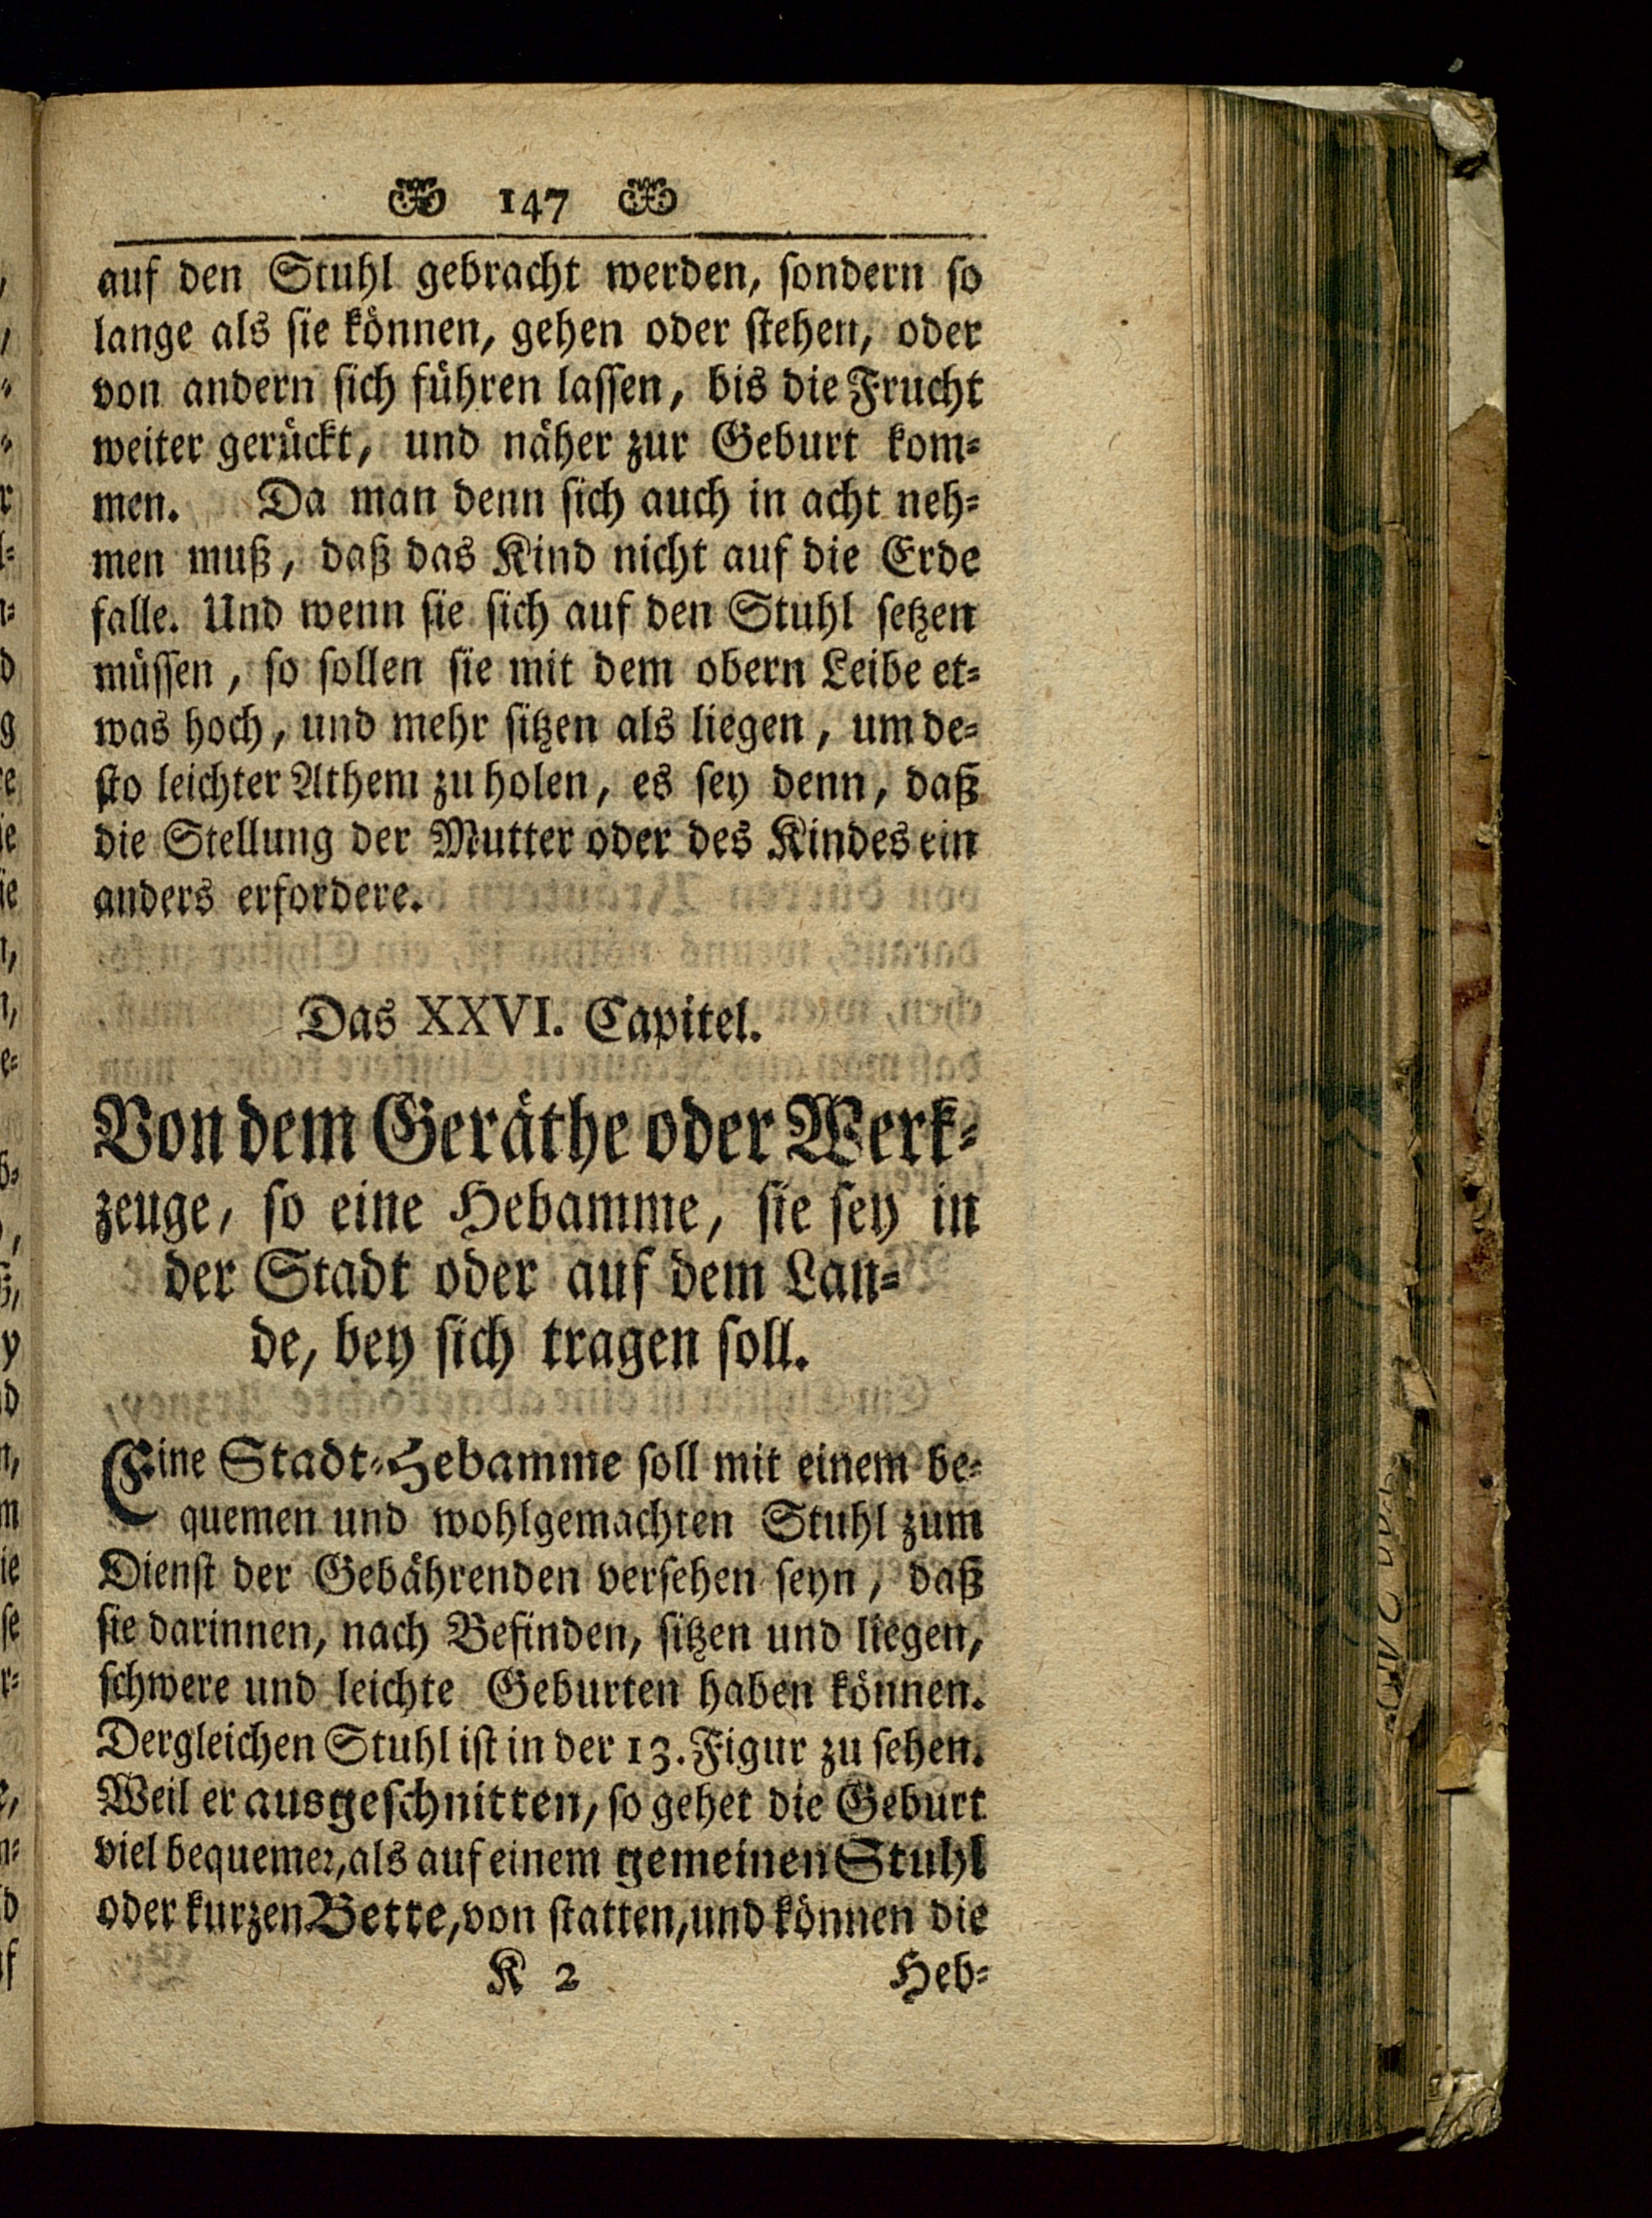 147
auf den Stuhl gebracht werden, sondern so
lange als sie können, gehen oder stehen, oder
von andern sich führen lassen, bis die Frucht
weiter gerückt, und näher zur Geburt kom-
men. Da man denn sich auch in acht neh-
men muß, daß das Kind nicht auf die Erde
falle. Und wenn sie sich auf den Stuhl setzen
müssen, so sollen sie mit dem obern Leibe et-
was hoch, und mehr sitzen als liegen, um de-
sto leichter Athem zu holen, es sey denn, daß
die Stellung der Mutter oder des Kindes ein
anders erfordere.
Das XXVI. Capitel.
Von dem Geräthe oder Werk-
zeuge, so eine Hebamme, sie sey in
der Stadt oder auf dem Lan-
de, bey sich tragen soll.
Eine Stadt-Hebamme soll mit einem be-
quemen und wohlgemachten Stuhl zum
Dienst der Gebährenden versehen seyn, daß
sie darinnen, nach Befinden, sitzen und liegen,
schwere und leichte Geburten haben können.
Dergleichen Stuhl ist in der 13. Figur zu sehen.
Weil er ausgeschnitten, so gehet die Geburt
viel bequemer, als auf einem gemeinen Stuhl
oder kurzen Bette, von statten, und können die
K 2 Heb-